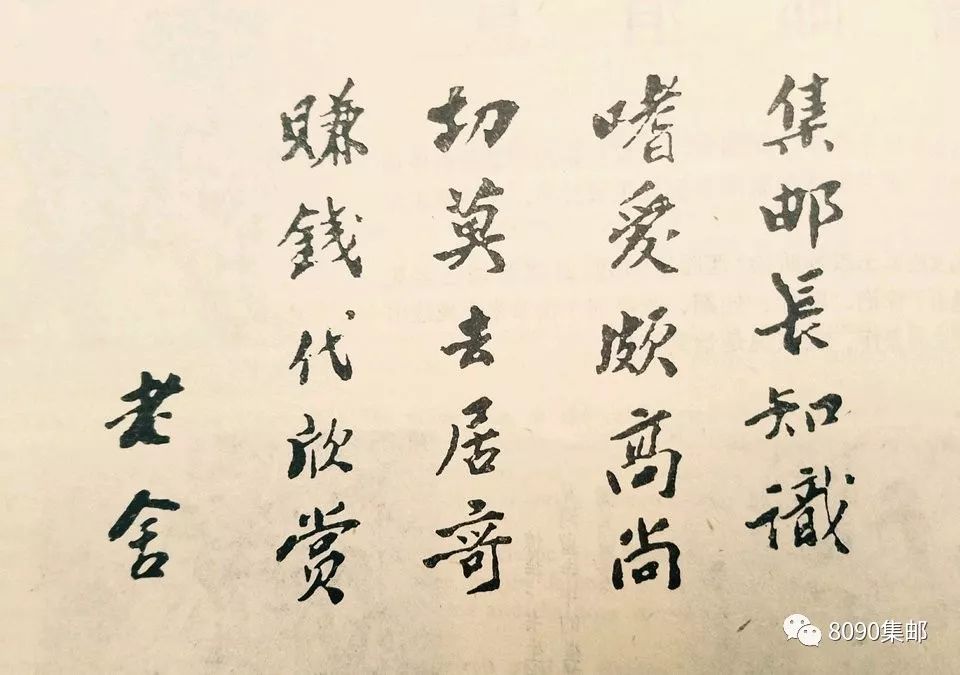 集邮長知識
嗜愛頗高尚
切莫去居奇
賺錢代欣赏
老舍
8090集邮